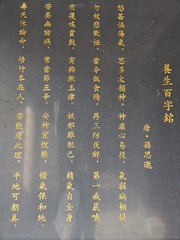 養生百字銘
唐·孫思邈
怒甚偏傷氣，思多太損神，神疲心易役，氣弱病相侵，
勿使悲歡極，當令飲食均，再三防夜醉，第一戒晨嗔，
鳴鼓，漱玉津，妖邪難犯己，精氣自全身，
若要無諸病，常當節五辛，安神宜悅樂，惜氣保和純，
壽夭休論命，修行本在人，若能遵此理，平地可朝真。